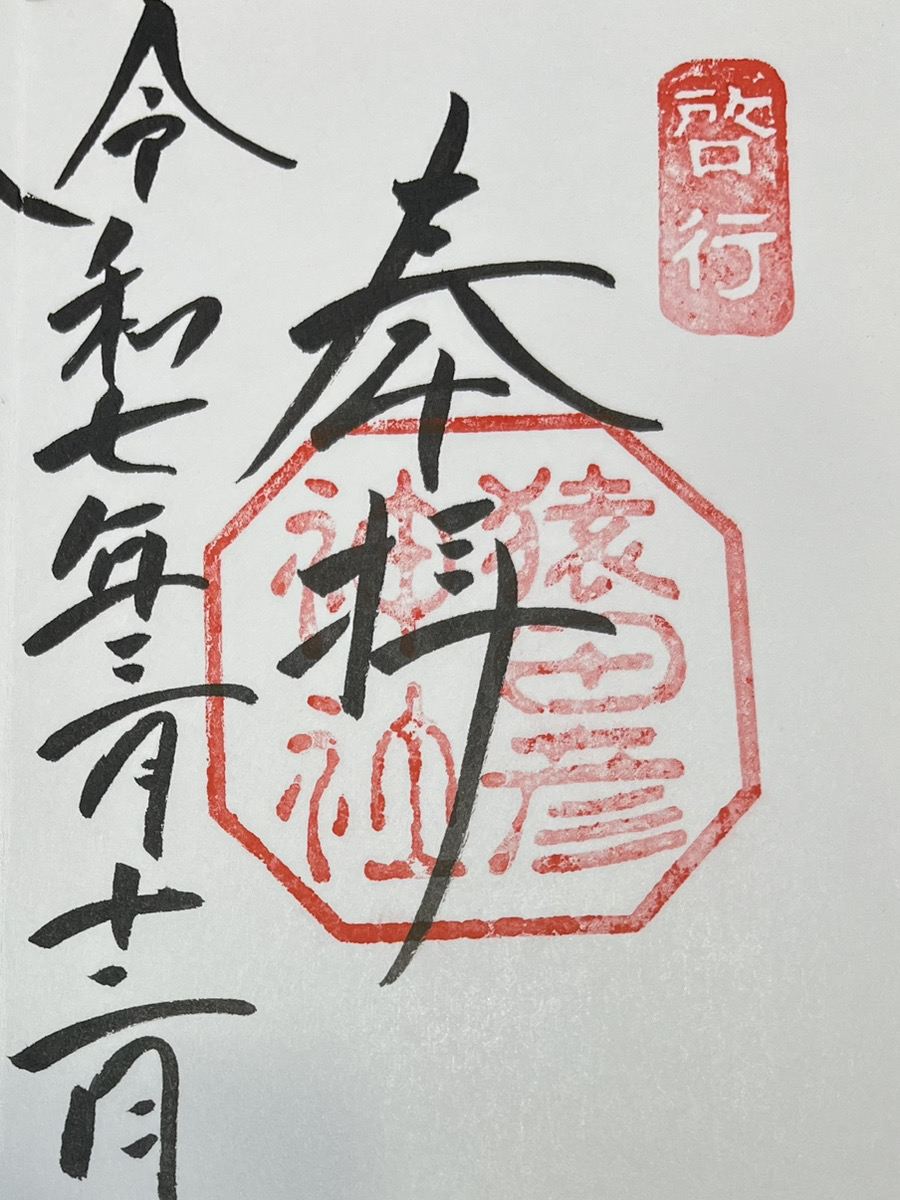 啓行
奉拝
猿田彦
神社
令和七年二月十二日